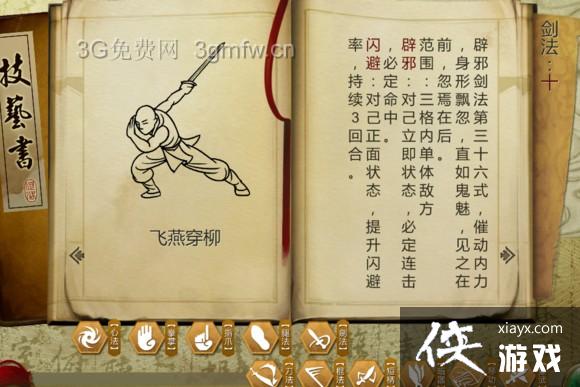 3G免费网 3gmfw.cn
技藝書
飞燕穿柳
剑法：十
辟邪剑法第三十六式，催动内力
，身形飘忽，直如鬼魅，见之在
前，忽焉在后。
范围：三格内，单体敌方
辟邪：对己立即状态，必定连击
，必定命中。
闪避：对己正面状态，提升闪避
率，持续3回合。
【心法】
【拳掌】
【指爪】
【腿法】
【剑法】
【刀法】
【棍法】
【短柄】
xiayx.com
侠游戏